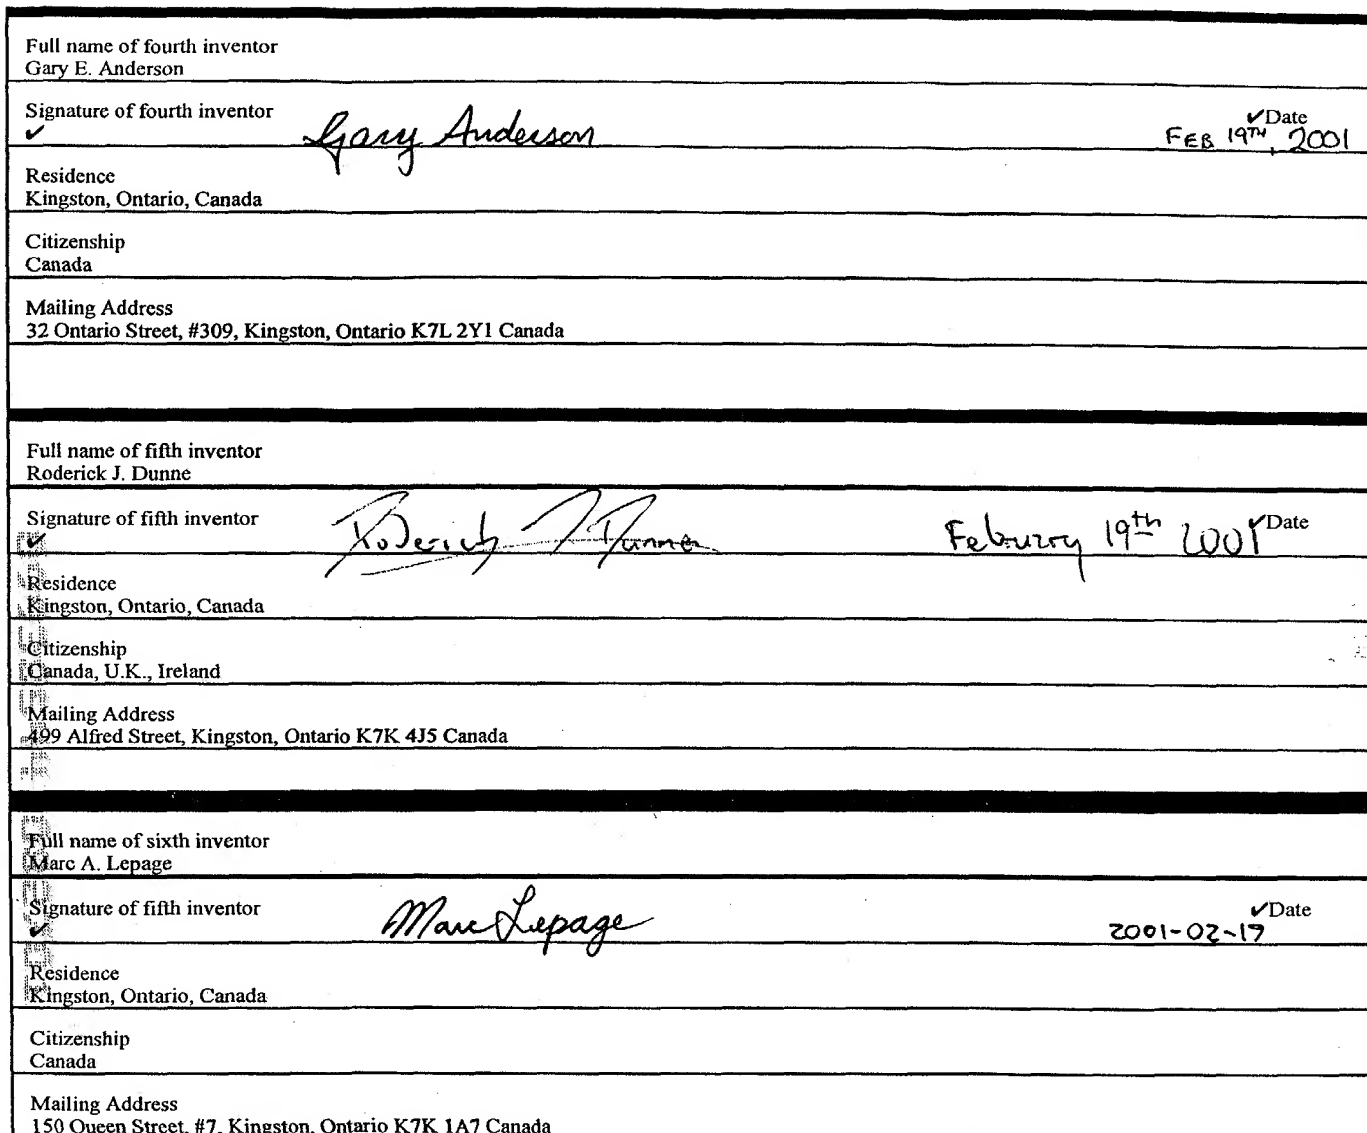 Full name of fourth inventor
Gary E. Anderson
Signature of fourth inventor
✔Date
✔ Gary Anderson FEB 19TH, 2001
Residence
Kingston, Ontario, Canada
Citizenship
Canada
Mailing Address
32 Ontario Street, #309, Kingston, Ontario K7L 2Y1 Canada
Full name of fifth inventor
Roderick J. Dunne
Signature of fifth inventor Roderick J Dunne Februrry 19th 2001 ✔Date
✔
Residence
Kingston, Ontario, Canada
Citizenship
Canada, U.K., Ireland
Mailing Address
499 Alfred Street, Kingston, Ontario K7K 4J5 Canada
Full name of sixth inventor
Marc A. Lepage
Signature of fifth inventor Marc Lepage ✔Date
✔ 2001-02-19
Residence
Kingston, Ontario, Canada
Citizenship
Canada
Mailing Address
150 Queen Street, #7, Kingston, Ontario K7K 1A7 Canada